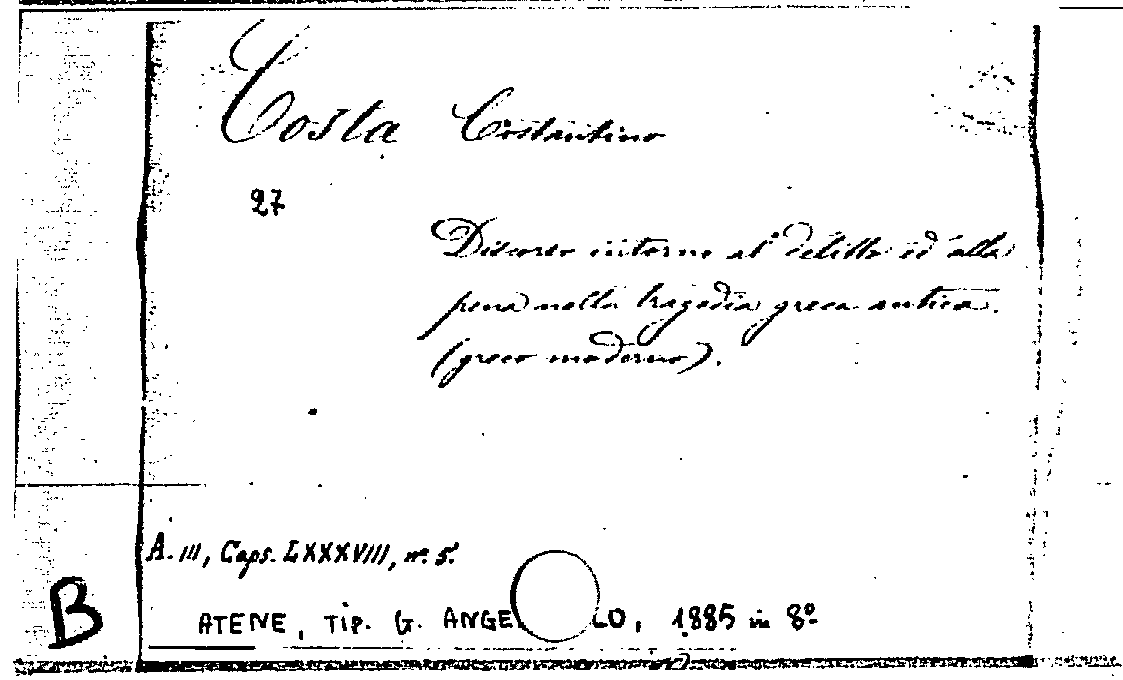 Costa Costantino
27
Discorso intorno al delitto ed alla
pena nella tragedia greca antica.
(greco moderno).
A. III, Caps. LXXXVIII, nº 5.
B
ATENE, TIP. G. ANGE LO, 1885 in 8º